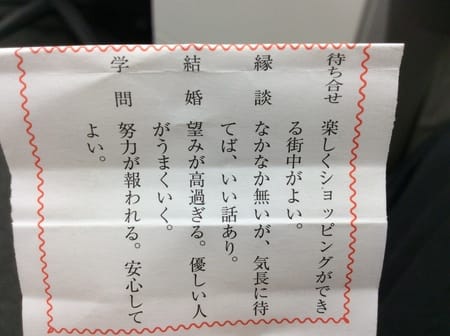 待ち合せ 楽しくショッピングができ
る街中がよい。
縁談 なかなか無いが、気長に待
てば、いい話あり。
結婚 望みが高過ぎる。優しい人
がうまくいく。
学問 努力が報われる。安心して
よい。